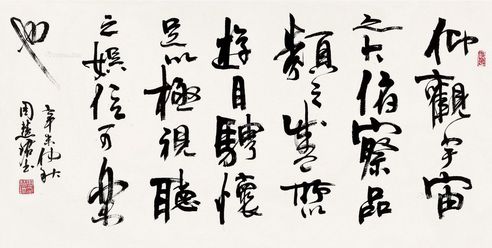 仰觀宇宙
之大俯察品
類之盛所以
遊目騁懷
足以極視聽
之娛信可樂
也
辛未仲秋
周慧珺书